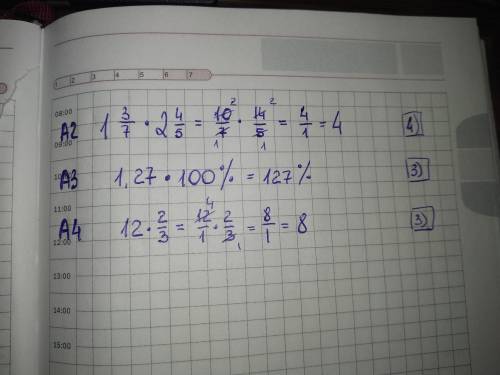 1 2 3 4 5 6 7
08:00
A2 1 3/7 · 2 4/5 = 10/7 · 14/5 = 4/1 = 4 4)
2 2
1 1
09:00
A3 1,27 · 100% = 127% 3)
11:00
A4 12 · 2/3 = 12/1 · 2/3 = 8/1 = 8 3)
4
1
12:00
13:00
14:00
15:00